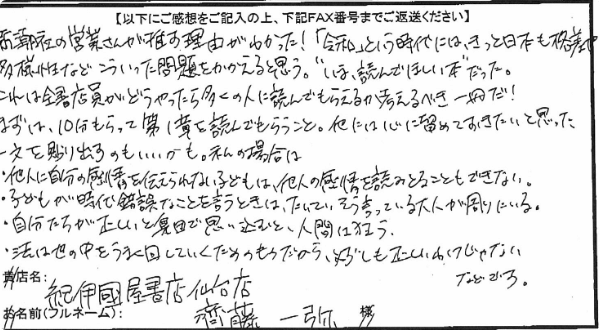 【以下にご感想をご記入の上、下記FAX番号までご返送ください】
新潮社の営業さんが推す理由がわかった！「令和」という時代には、きっと日本も格差や
多様性などこういった問題をかかえると思う。"いま、読んでほしい本"だった。
これは全書店員がどうやったら多くの人に読んでもらえるか考えるべき一冊だ！
まずは、10分もらって第1章を読んでもらうこと。他には心に留めておきたいと思った
一文を貼り出すのもいいかも。私の場合は
・他人に自分の感情を伝えられない子どもは、他人の感情を読みとることもできない。
・子どもが時代錯誤なことを言うときは、たいていそう言っている大人が周りにいる。
・自分たちが正しいと集団で思い込むと、人間は狂う。
・法は世の中をうまく回していくためのものだから、必ずしも正しいわけじゃない
などである。
貴店名：
紀伊國屋書店仙台店
お名前（フルネーム）：
齋藤 一弥 様